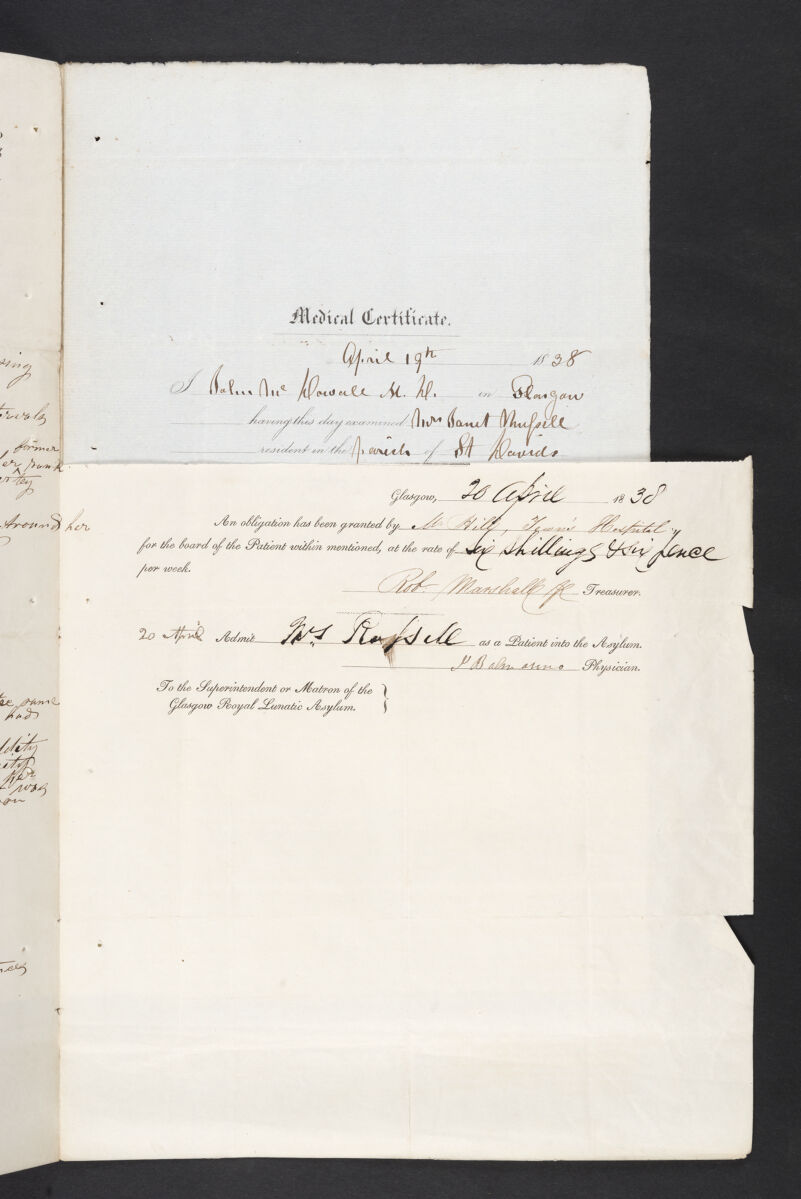 Medical Certificate.
April 19th 1838
I John Mc Dowall M. D. in Glasgow
having this day examined Mrs Janet
resident in the parish of St Davids
Glasgow, 20 April 1838
An obligation has been granted by Mr Hill, Town's Hospital,
for the board of the Patient within mentioned, at the rate of six shillings & six pence
per week.
Rob. Marshall Treasurer.
20 April Admit Mrs Russell as a Patient into the Asylum.
J Balmanno Physician.
To the Superintendent or Matron of the
Glasgow Royal Lunatic Asylum.
former
around her
same
had
was